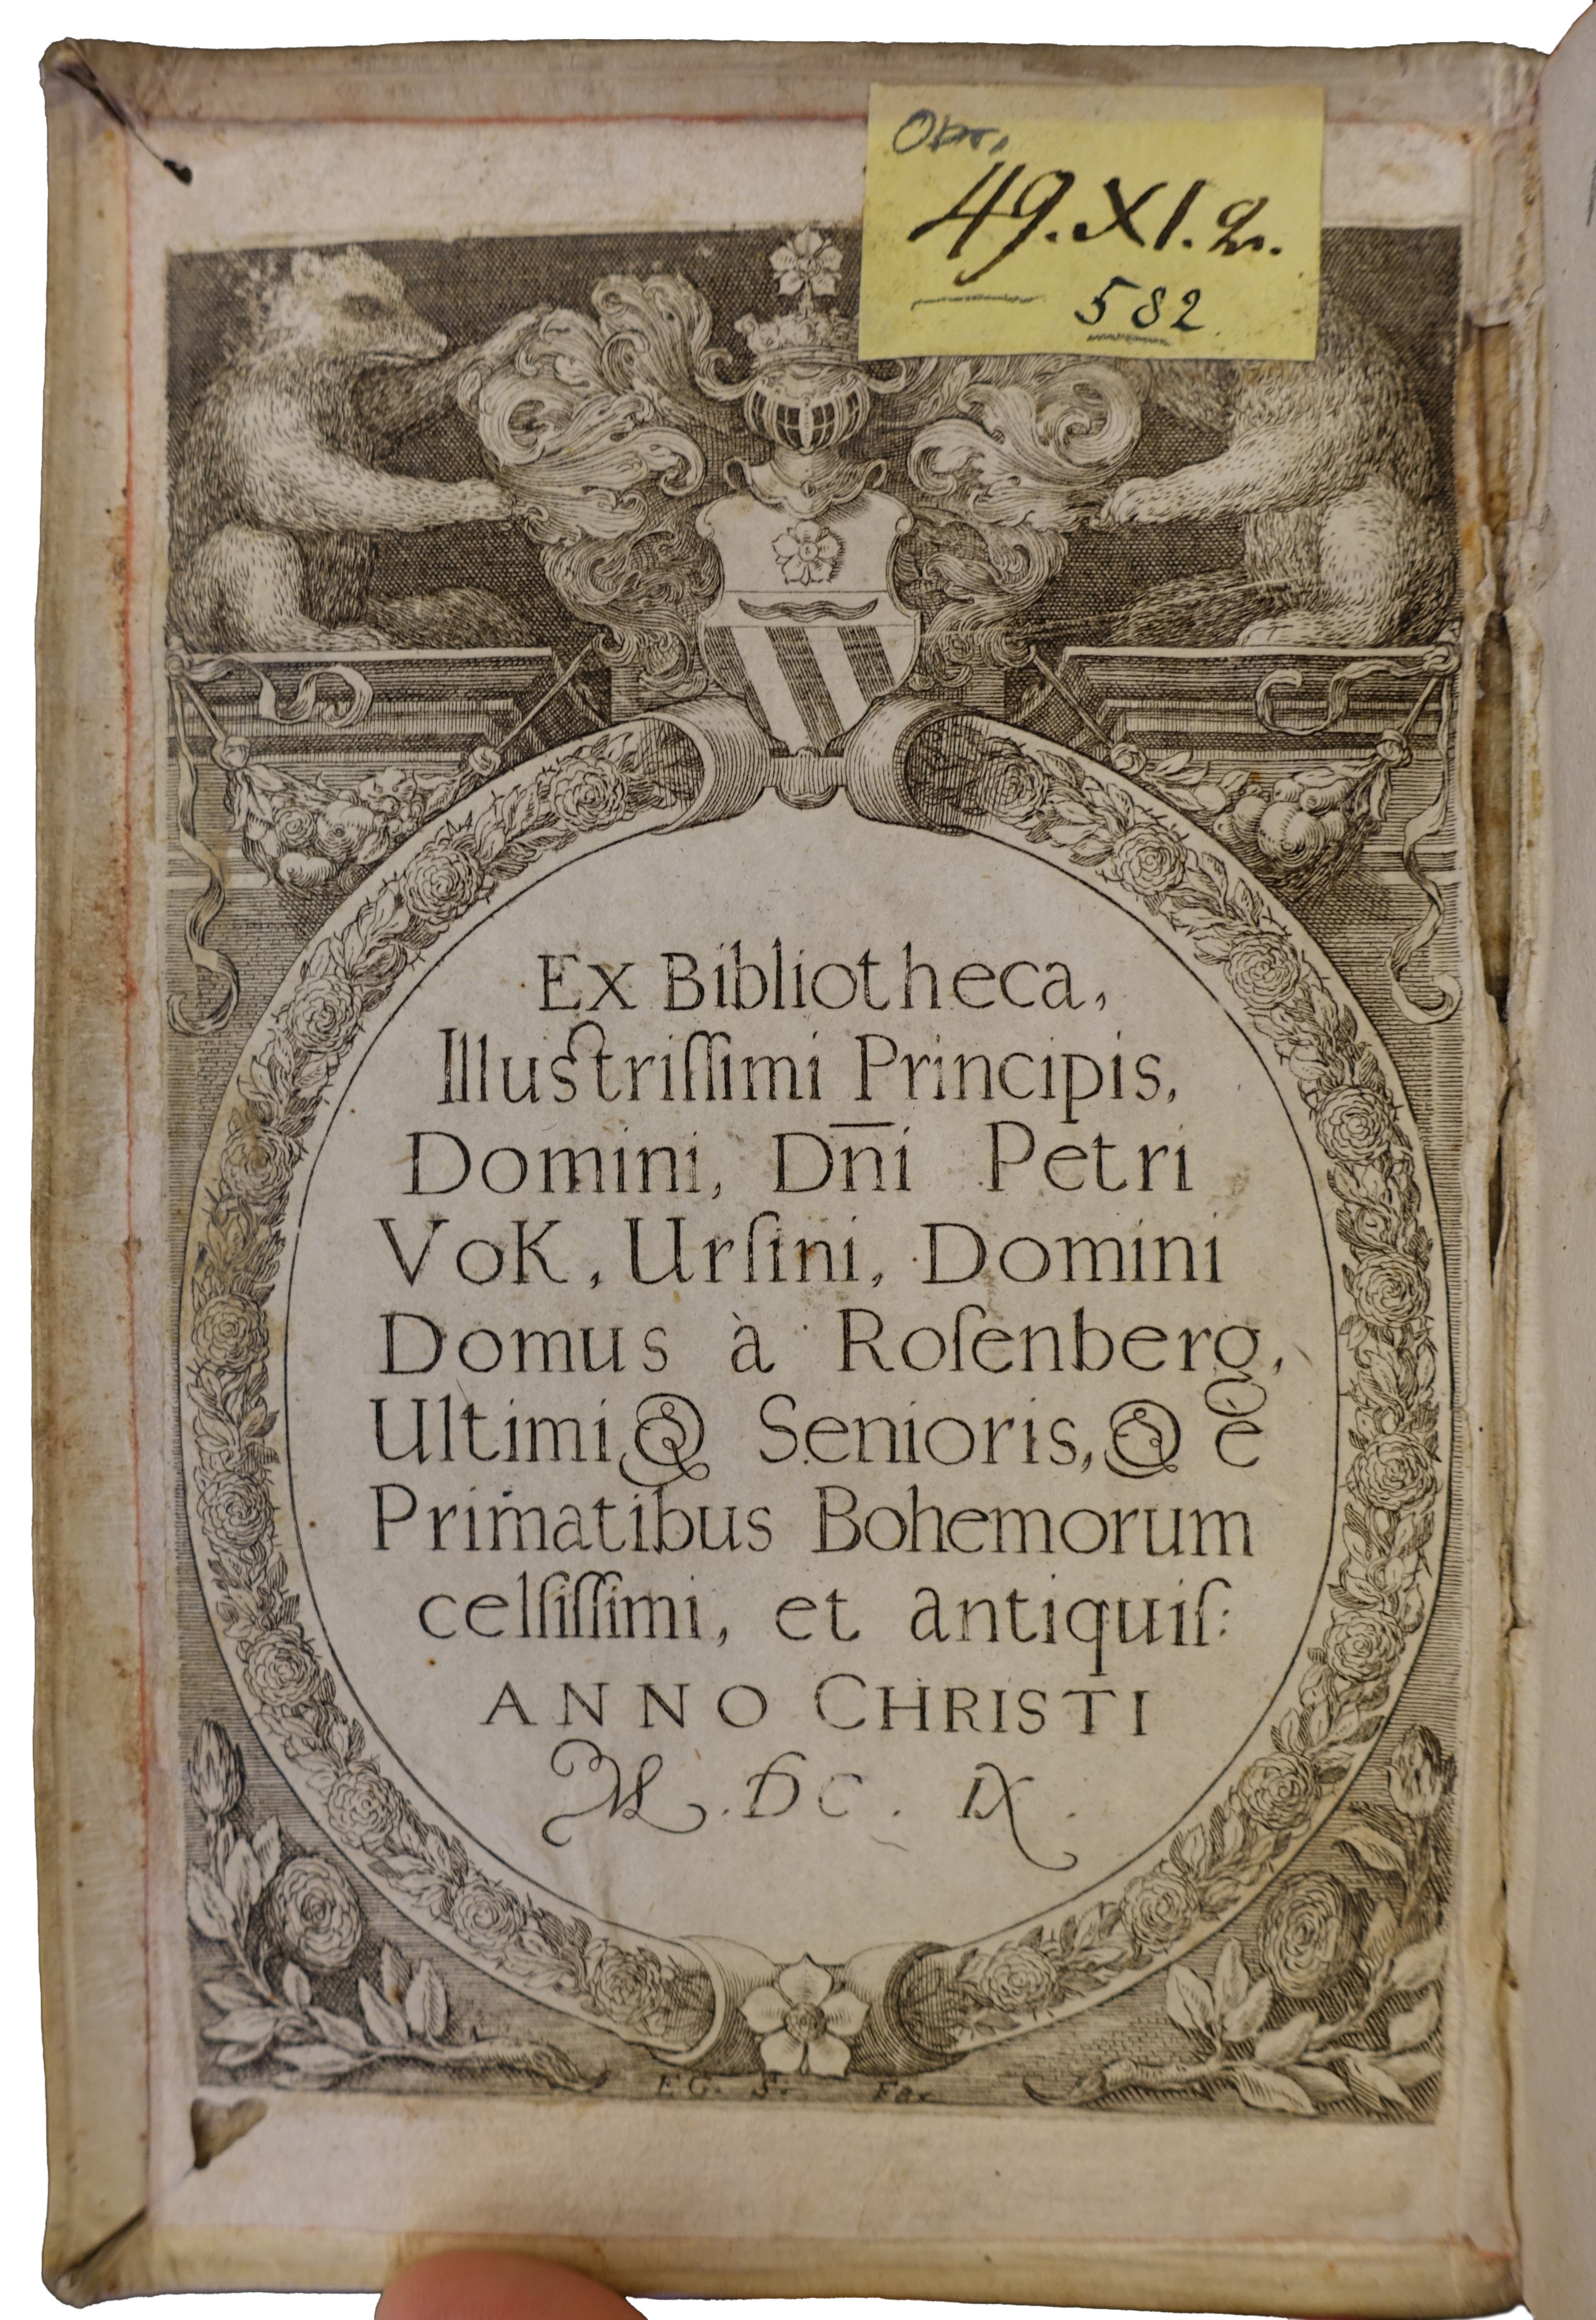 49.XI.2.
582
Ex Bibliotheca,
Illustriſſimi Principis,
Domini, Dn̅i Petri
VoK, Urſini, Domini
Domus à Roſenberg,
Ultimi & Senioris, & è
Primatibus Bohemorum
celſiſſimi, et antiquiſ:
ANNO CHRISTI
M.DC.IX.